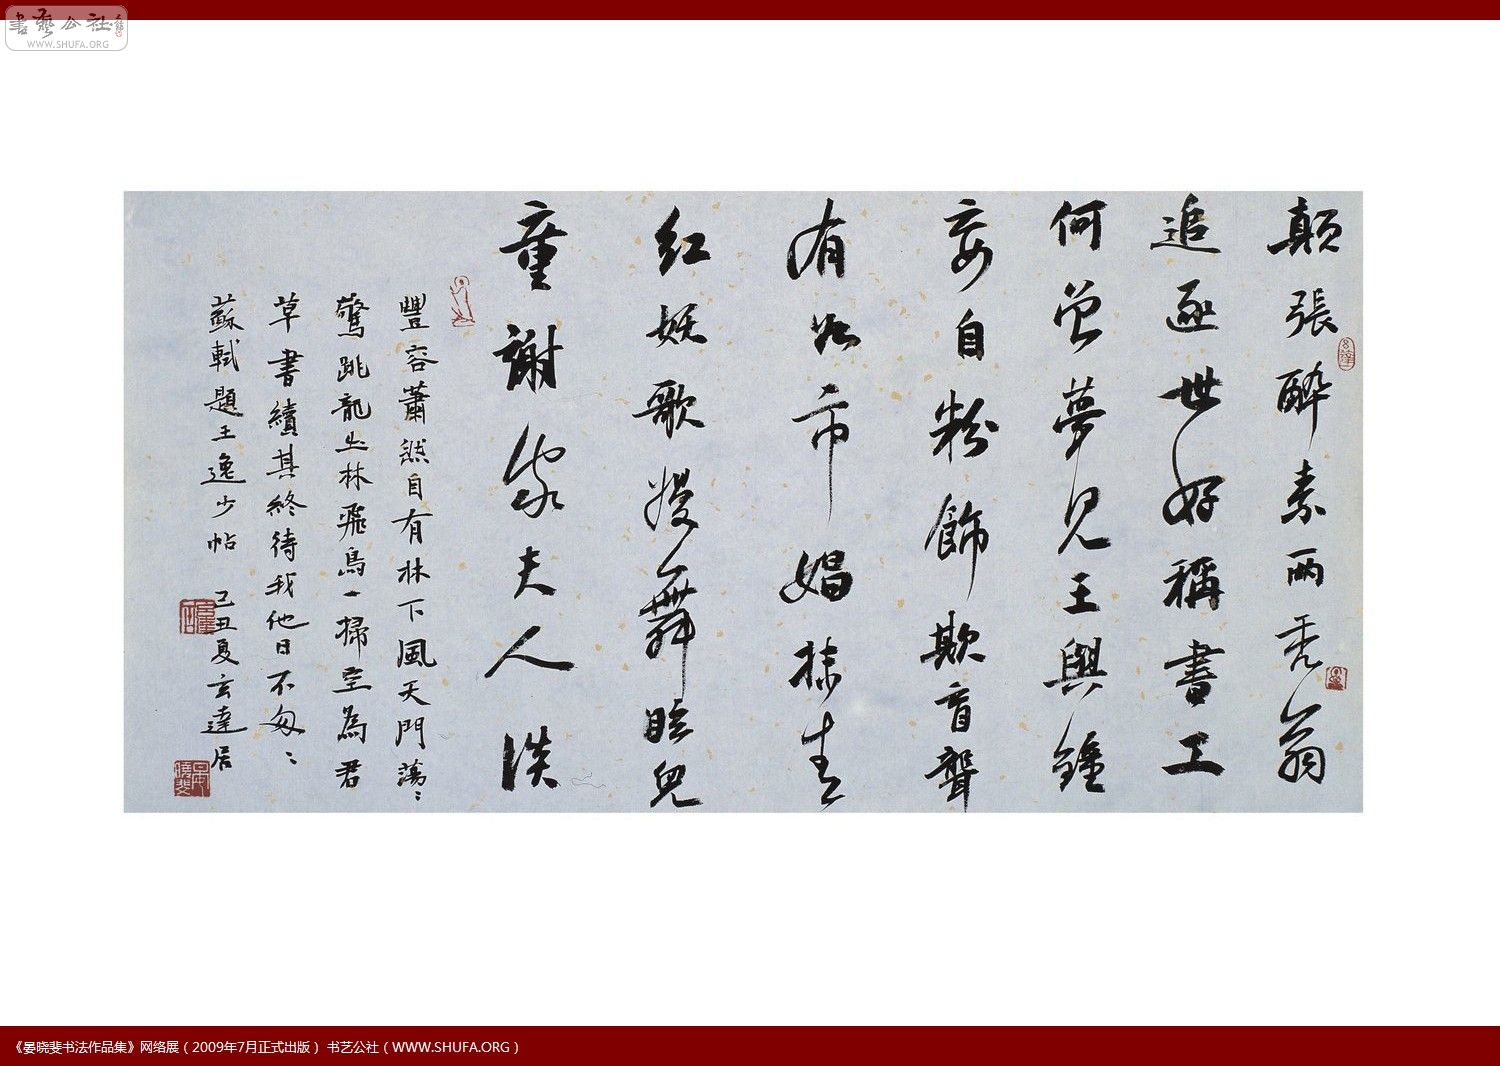 書藝公社
WWW.SHUFA.ORG
顛張醉素兩禿翁
追逐世好稱書工
何曾夢見王與鍾
妄自粉飾欺盲聾
有如市娼抹青
紅妖歌嫚舞眩兒
童謝家夫人淡
豐容蕭然自有林下風天門蕩〻
驚跳龍出林飛鳥一掃空為君
草書續其終待我他日不匆〻
蘇軾題王逸少帖 己丑夏玄達居
《晏晓斐书法作品集》网络展（2009年7月正式出版） 书艺公社（WWW.SHUFA.ORG）